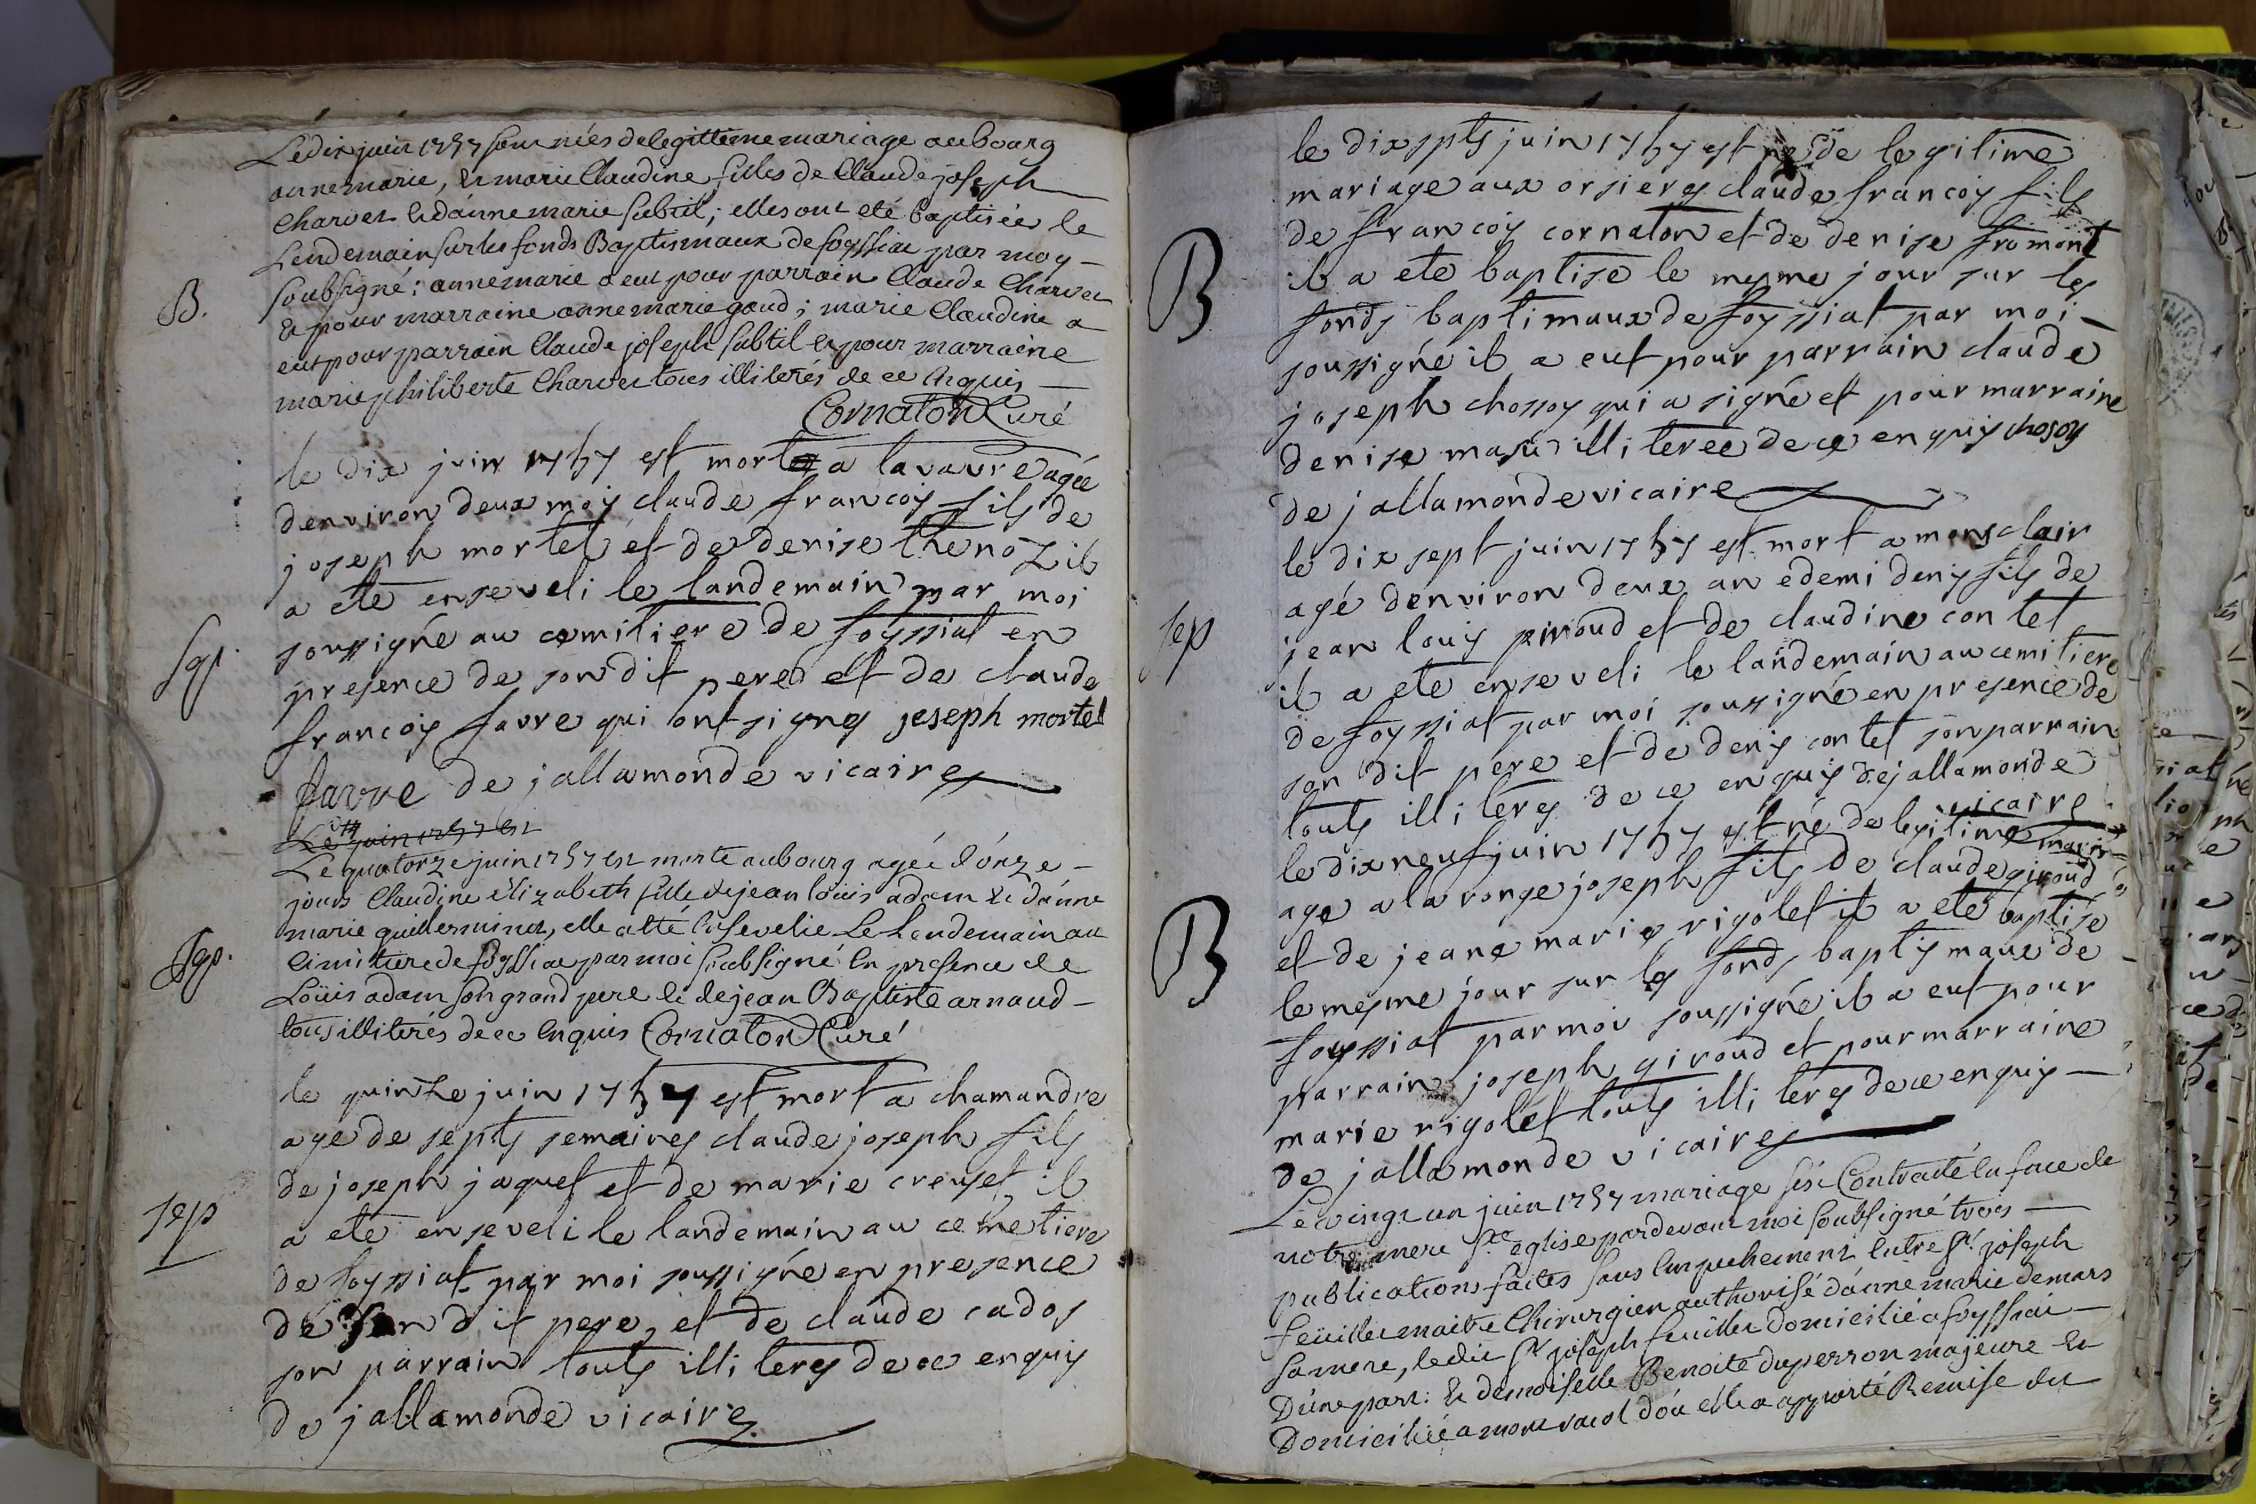 Le dix juin 1757 sont nées de legittime mariage au bourg
anne marie, et marie Claudine filles de Claude joseph
Charvet et d'anne marie subtil; elles ont eté baptisée le
Lendemain sur les fonds Baptismaux de foyssiat par moy
B.
soubsigné: anne marie a eut pour parrain Claude Charvet
et pour marraine anne marie gaud; marie Claudine a
eut pour parrain Claude joseph subtil et pour marraine
marie philiberte Charvet tous illiterés de ce Enquis
Cornaton Curé
le dix juin 1757 est mort a lavavre agée
denviron deux mois claude francois fils de
joseph mortel et de denise thenoz il
a ete enseveli le landemain par moi
Sep.
soussigné au cemitiere de foyssiat en
presence de son dit pere et de claude
francois favre qui ont signes joseph mortel
favre de jallamonde vicaire
Le juin 1757 est
Le quatorze juin 1757 est morte au bourg agée d'onze
jours Claudine elizabeth fille de jean loüis adam et d'anne
marie guillerminet, elle a été Ensevelie Le Lendemain au
Sep.
Cimitiere de foyssiat par moi soubsigné En presence de
Loüis adam son grand pere et de jean Baptiste arnaud
tous illiterés de ce Enquis Cornaton Curé
le quinze juin 1757 est mort a chamandre
age de septs semaines claude joseph fils
de joseph jaquet et de marie creuset il
sep
a ete enseveli le landemain au cemetiere
de foyssiat par moi soussigné en presence
de son dit pere, et de claude cados
son parrain touts illiteres de ce enquis
de jallamonde vicaire
le dix septs juin 1757 est né de legitime
mariage aux orsieres claude francois fils
de francois cornaton et de denise fromont
B
il a ete baptise le mesme jour sur les
fonds baptimaux de foyssiat par moi
soussigné il a eut pour parrain claude
joseph chossoy qui a signé et pour marraine
denise illiteree de ce enquis chosoy
de jallamonde vicaire
le dix sept juin 1757 est mort a monsclair
agé denviron deux an e demi denis fils de
sep
jean louis piroud et de claudine contet
il a ete enseveli le landemain au cemitiere
de foyssiat par moi soussigné en presence de
son dit pere et de denis contet son parrain
touts illiteres de ce enquis dejallamonde
vicaire
le dix neuf juin 1757 est né de legitime mari
age a la ronge joseph fils de claude giroud
B
et de jeane marie rigolet il a ete baptise
le mesme jour sur les fonds baptismaux de
foyssiat par moi soussigné il a eut pour
parrain joseph giroud et pour marraine
marie rigolet touts illiteres de ce enquis
de jallamonde vicaire
Le vingt un juin 1757 mariage s'est Contracté En face de
notre mere Ste eglise pardevant moi soubsigné trois
publications faites sans Empechement Entre Sr joseph
feüillet maitre Chirurgien authorisé d'anne marie demars
sa mere, ledit Sr joseph feuillet domicilié a foyssiat
D'une part: et demoiselle Benoite duperron majeure et
Domiciliée a d'où elle a apporté Remise du